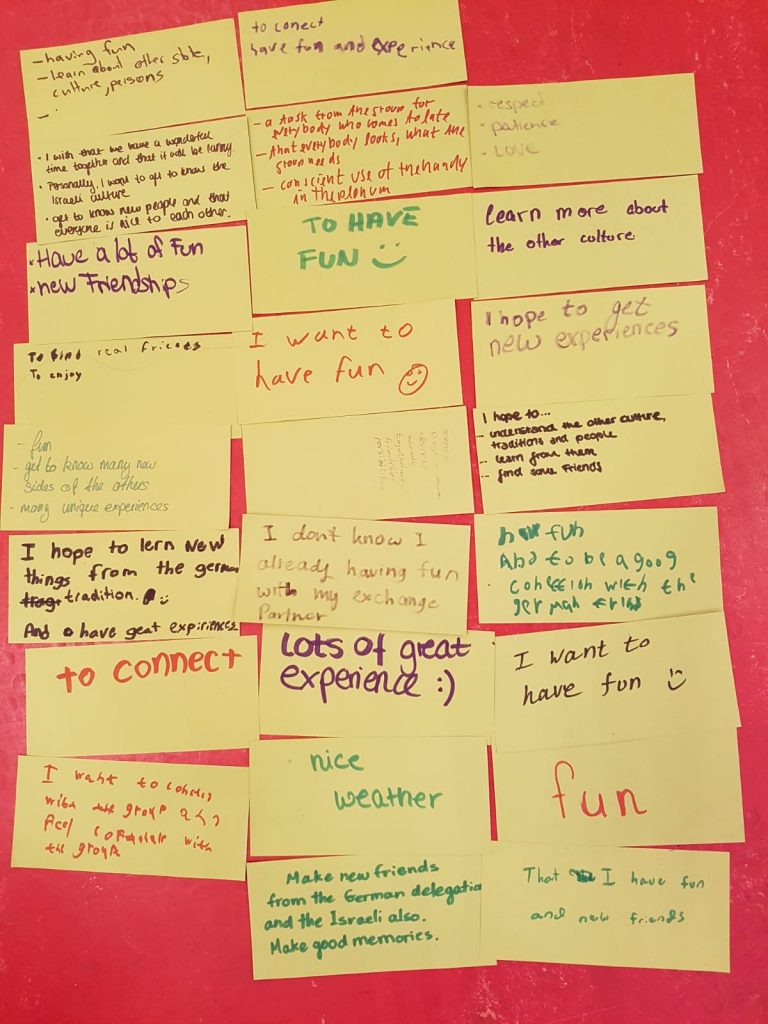 - having fun
- learn about other state,
culture, persons
- .
to conect
have fun and experience
• I wish that we have a wonderful
time together and that it will be funny.
• Personally, I want to get to know the
Israeli culture
• get to know new people and that
everyone is nice to each other.
- a task from the group for
everybody who comes to late
- that everybody looks, what the
group needs
- conscient use of the handy
in the plenum
• respect
• patience
• LOVE
• Have a lot of Fun
• new Friendships
TO HAVE
FUN
learn more about
the other culture
To find real friends
To enjoy
I want to
have fun
I hope to get
new experiences
- fun
- get to know many new
sides of the others
- many unique experiences
I hope to...
- understand the other culture,
traditions and people
- learn from them
- find some Friends
I hope to lern New
things from the german
tradition.
And have geat expiriences
I dont know I
already having fun
with my exchange
Partner
fun
And to be a good
with the
german
to connect
Lots of great
experience :)
I want to
have fun
I want to
with the group and
feel with
the group
nice
weather
fun
Make new friends
from the German delegatio
and the Israeli also.
Make good memories.
That I have fun
and new friends